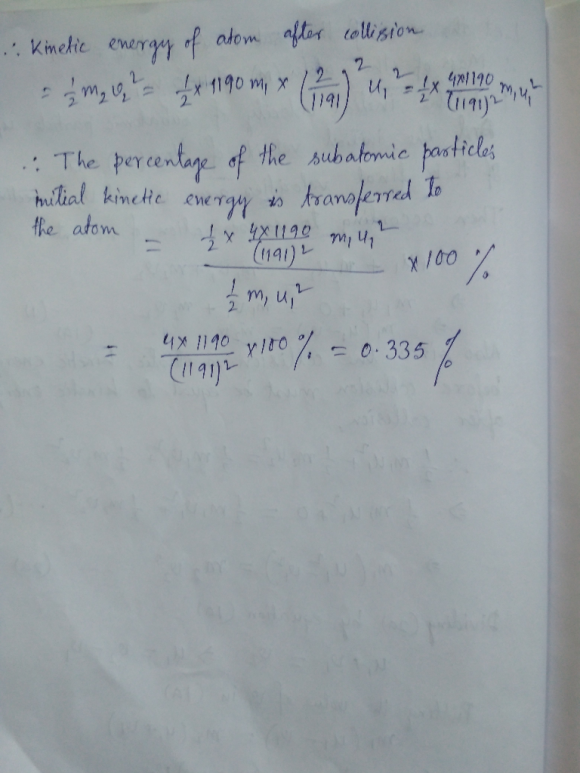 ∴ Kinetic energy of atom after collision
= 1/2 m₂v₂² = 1/2 × 1190 m₁ × (2/1191)² u₁² = 1/2 × 4×1190/(1191)² m₁u₁²
∴ The percentage of the subatomic particles
initial kinetic energy is transferred to
the atom = (1/2 × 4×1190/(1191)² m₁u₁²)/(1/2 m₁u₁²) × 100 %
= 4×1190/(1191)² × 100 % = 0.335 %